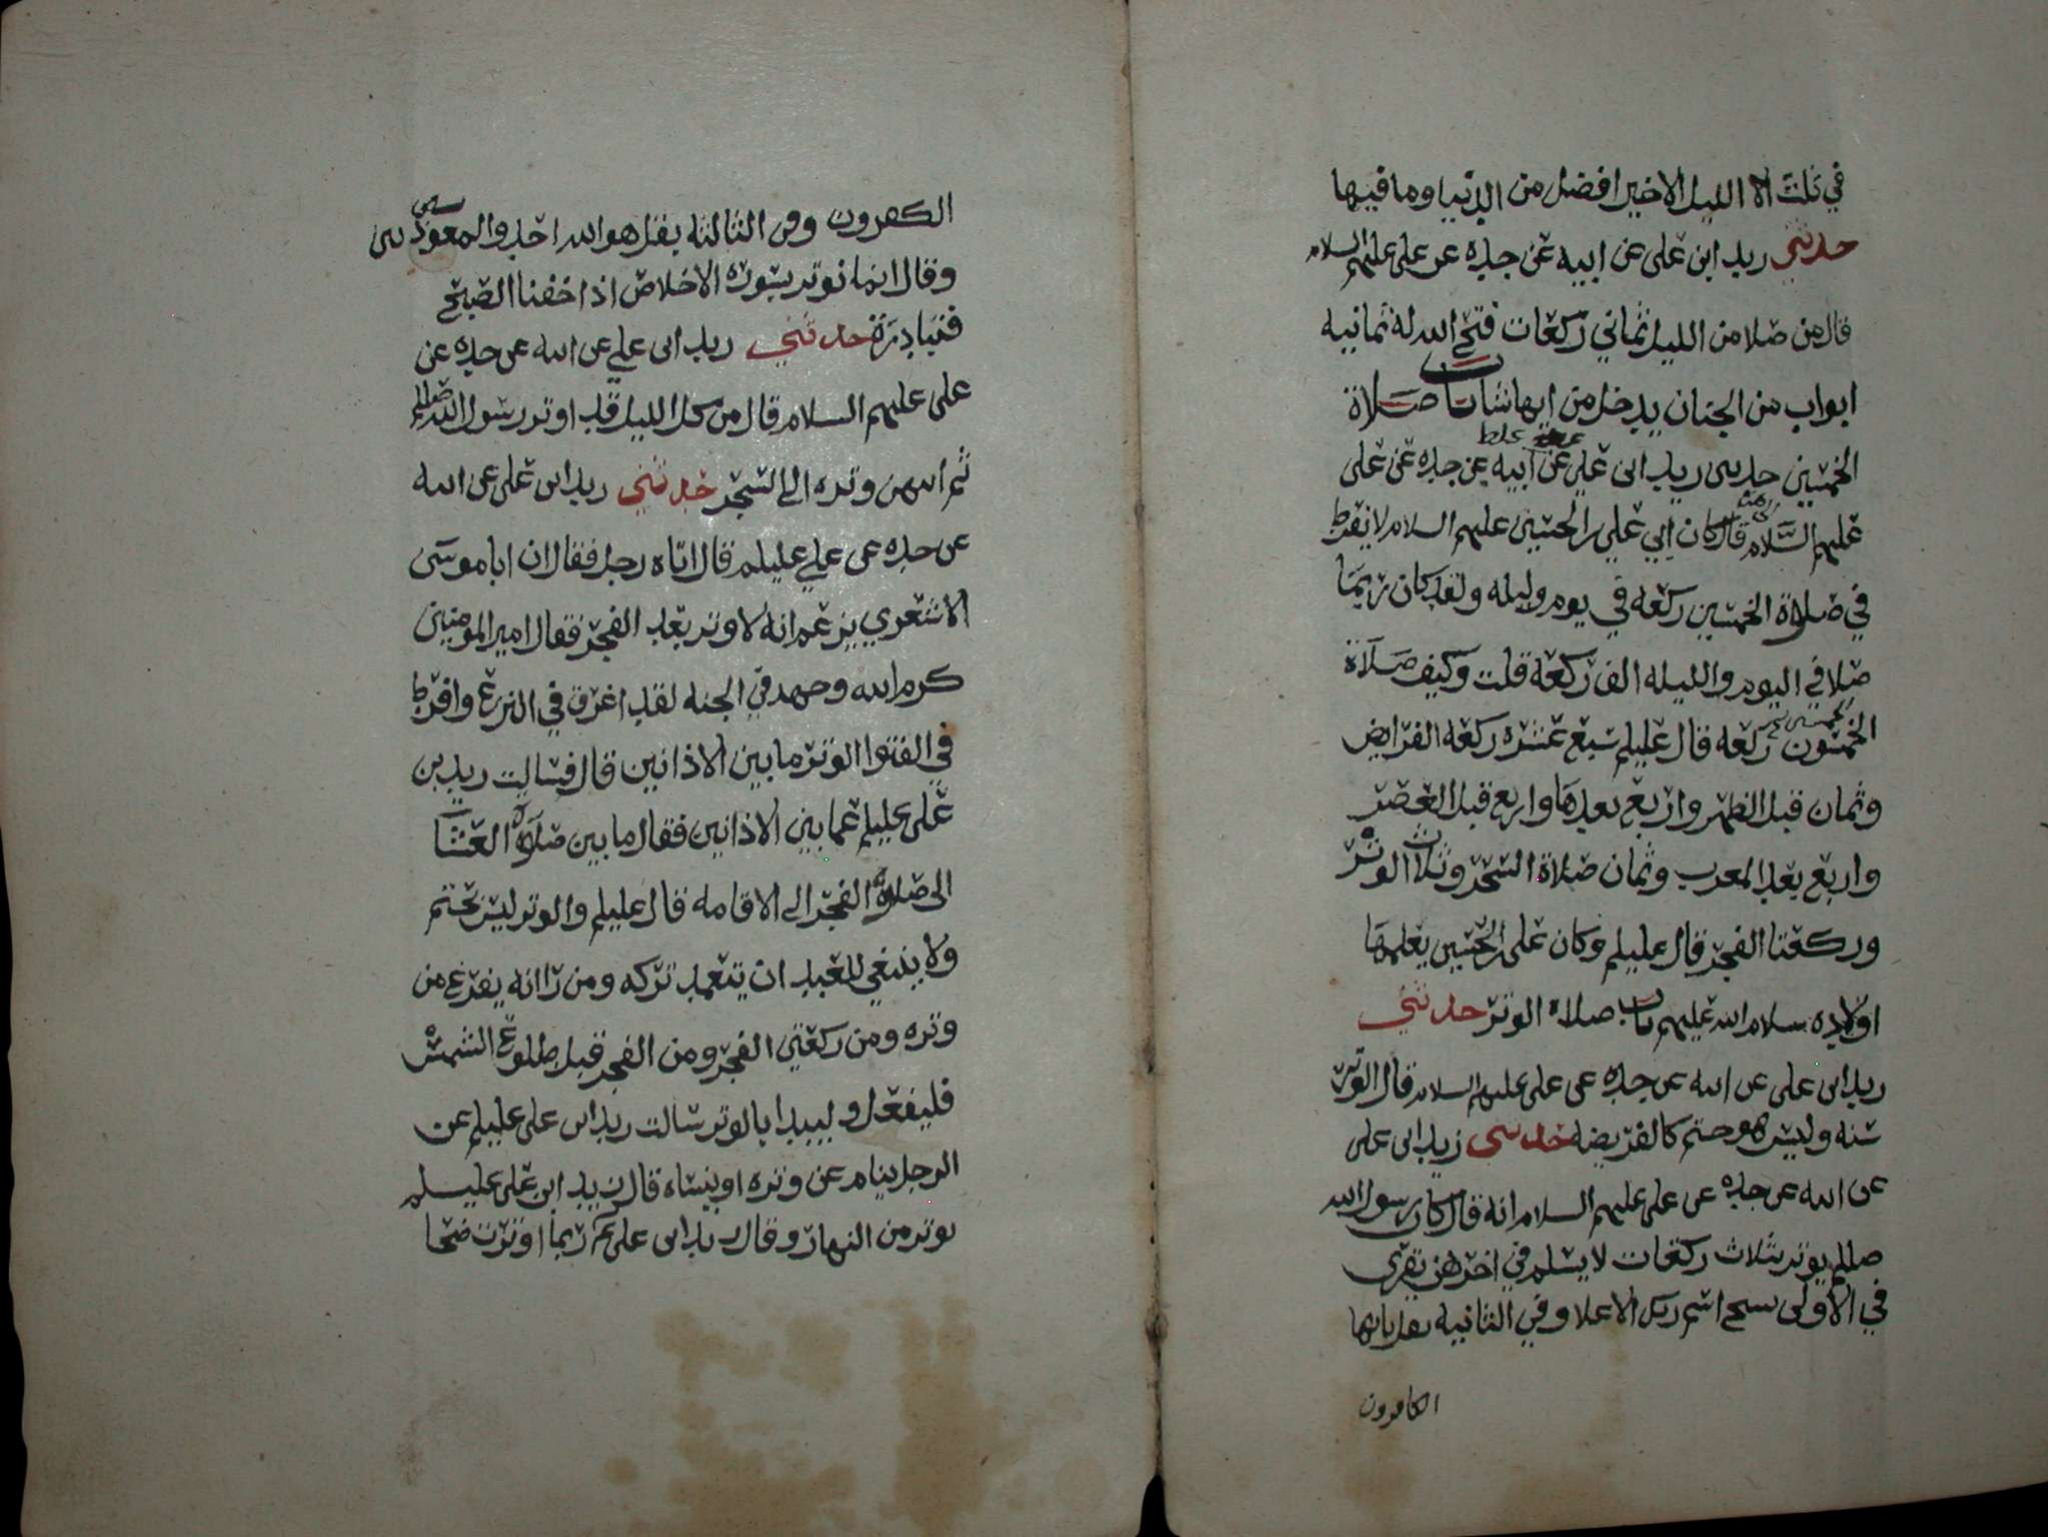 في ثلث الا الليل الاخير افضل من الدنيا وما فيها
حدثني زيد ابن علي عن ابيه عن جده عن علي عليهم السلام
قال من صلا من الليل ثماني ركعات فتح الله له ثمانيه
ابواب من الجنان يدخل من ايها شا باب صلاة
الخمسين حدثني زيد ابن علي عن ابيه عن جده عن علي
عليهم السلام قال كان ابي علي بن الحسين عليهم السلام لا يفرط
في صلاة الخمسين ركعه في يوم وليله ولقد كان ربما
صلا في اليوم والليله الف ركعه قلت وكيف صلاة
الخمسون ركعه قال عليلم سبع عشره ركعه الفرايض
وثمان قبل الظهر واربع بعدها واربع قبل العصر
واربع بعد المغرب وثمان صلاة السحر وثلاث الوتر
وركعتا الفجر قال عليلم وكان علي بن الحسين يعلمها
اولاده سلام الله عليهم باب صلاة الوتر حدثني
زيد ابن علي عن ابيه عن جده عن علي عليهم السلام قال الوتر
سنه وليس هو حتم كالفريضه حدثني زيد ابن علي
عن ابيه عن جده عن علي عليهم السلام انه قال كان رسول الله
صللم يوتر بثلاث ركعات لا يسلم في اخرهن يقرى
في الاولى سبح اسم ربك الاعلا وفي الثانيه بقل يايها
الكافرون
الكفرون وفي الثالثه بقل هو الله احد والمعوذتين
وقال انما نوتر بسورة الاخلاص اذا خفنا الصبح
فنبادره حدثني زيد ابن علي عن ابيه عن جده عن
علي عليهم السلام قال من كل الليل قد اوتر رسول الله صللم
ثم انتهى وتره الى السحر حدثني زيد ابن علي عن ابيه
عن جده عن علي عليلم قال اتاه رجل فقال ان ابا موسى
الاشعري يزعم انه لا وتر بعد الفجر فقال امير المومنين
كرم الله وجهه في الجنه لقد اغرق في النزع وافرط
في الفتوا الوتر ما بين الاذانين قال فسالت زيد بن
علي عليلم عما بين الاذانين فقال ما بين صلاة العشا
الى صلاة الفجر الى الاقامه قال عليلم والوتر ليس بحتم
ولا ينبغي للعبد ان يتعمد تركه ومن را انه يفرغ من
وتره ومن ركعتي الفجر ومن الفجر قبل طلوع الشمس
فليفعل وليبدا بالوتر سالت زيد ابن علي عليلم عن
الرجل ينام عن وتره او ينساه قال زيد ابن علي عليلم
يوتر من النهار وقال زيد ابن علي ربما اوترت ضحا